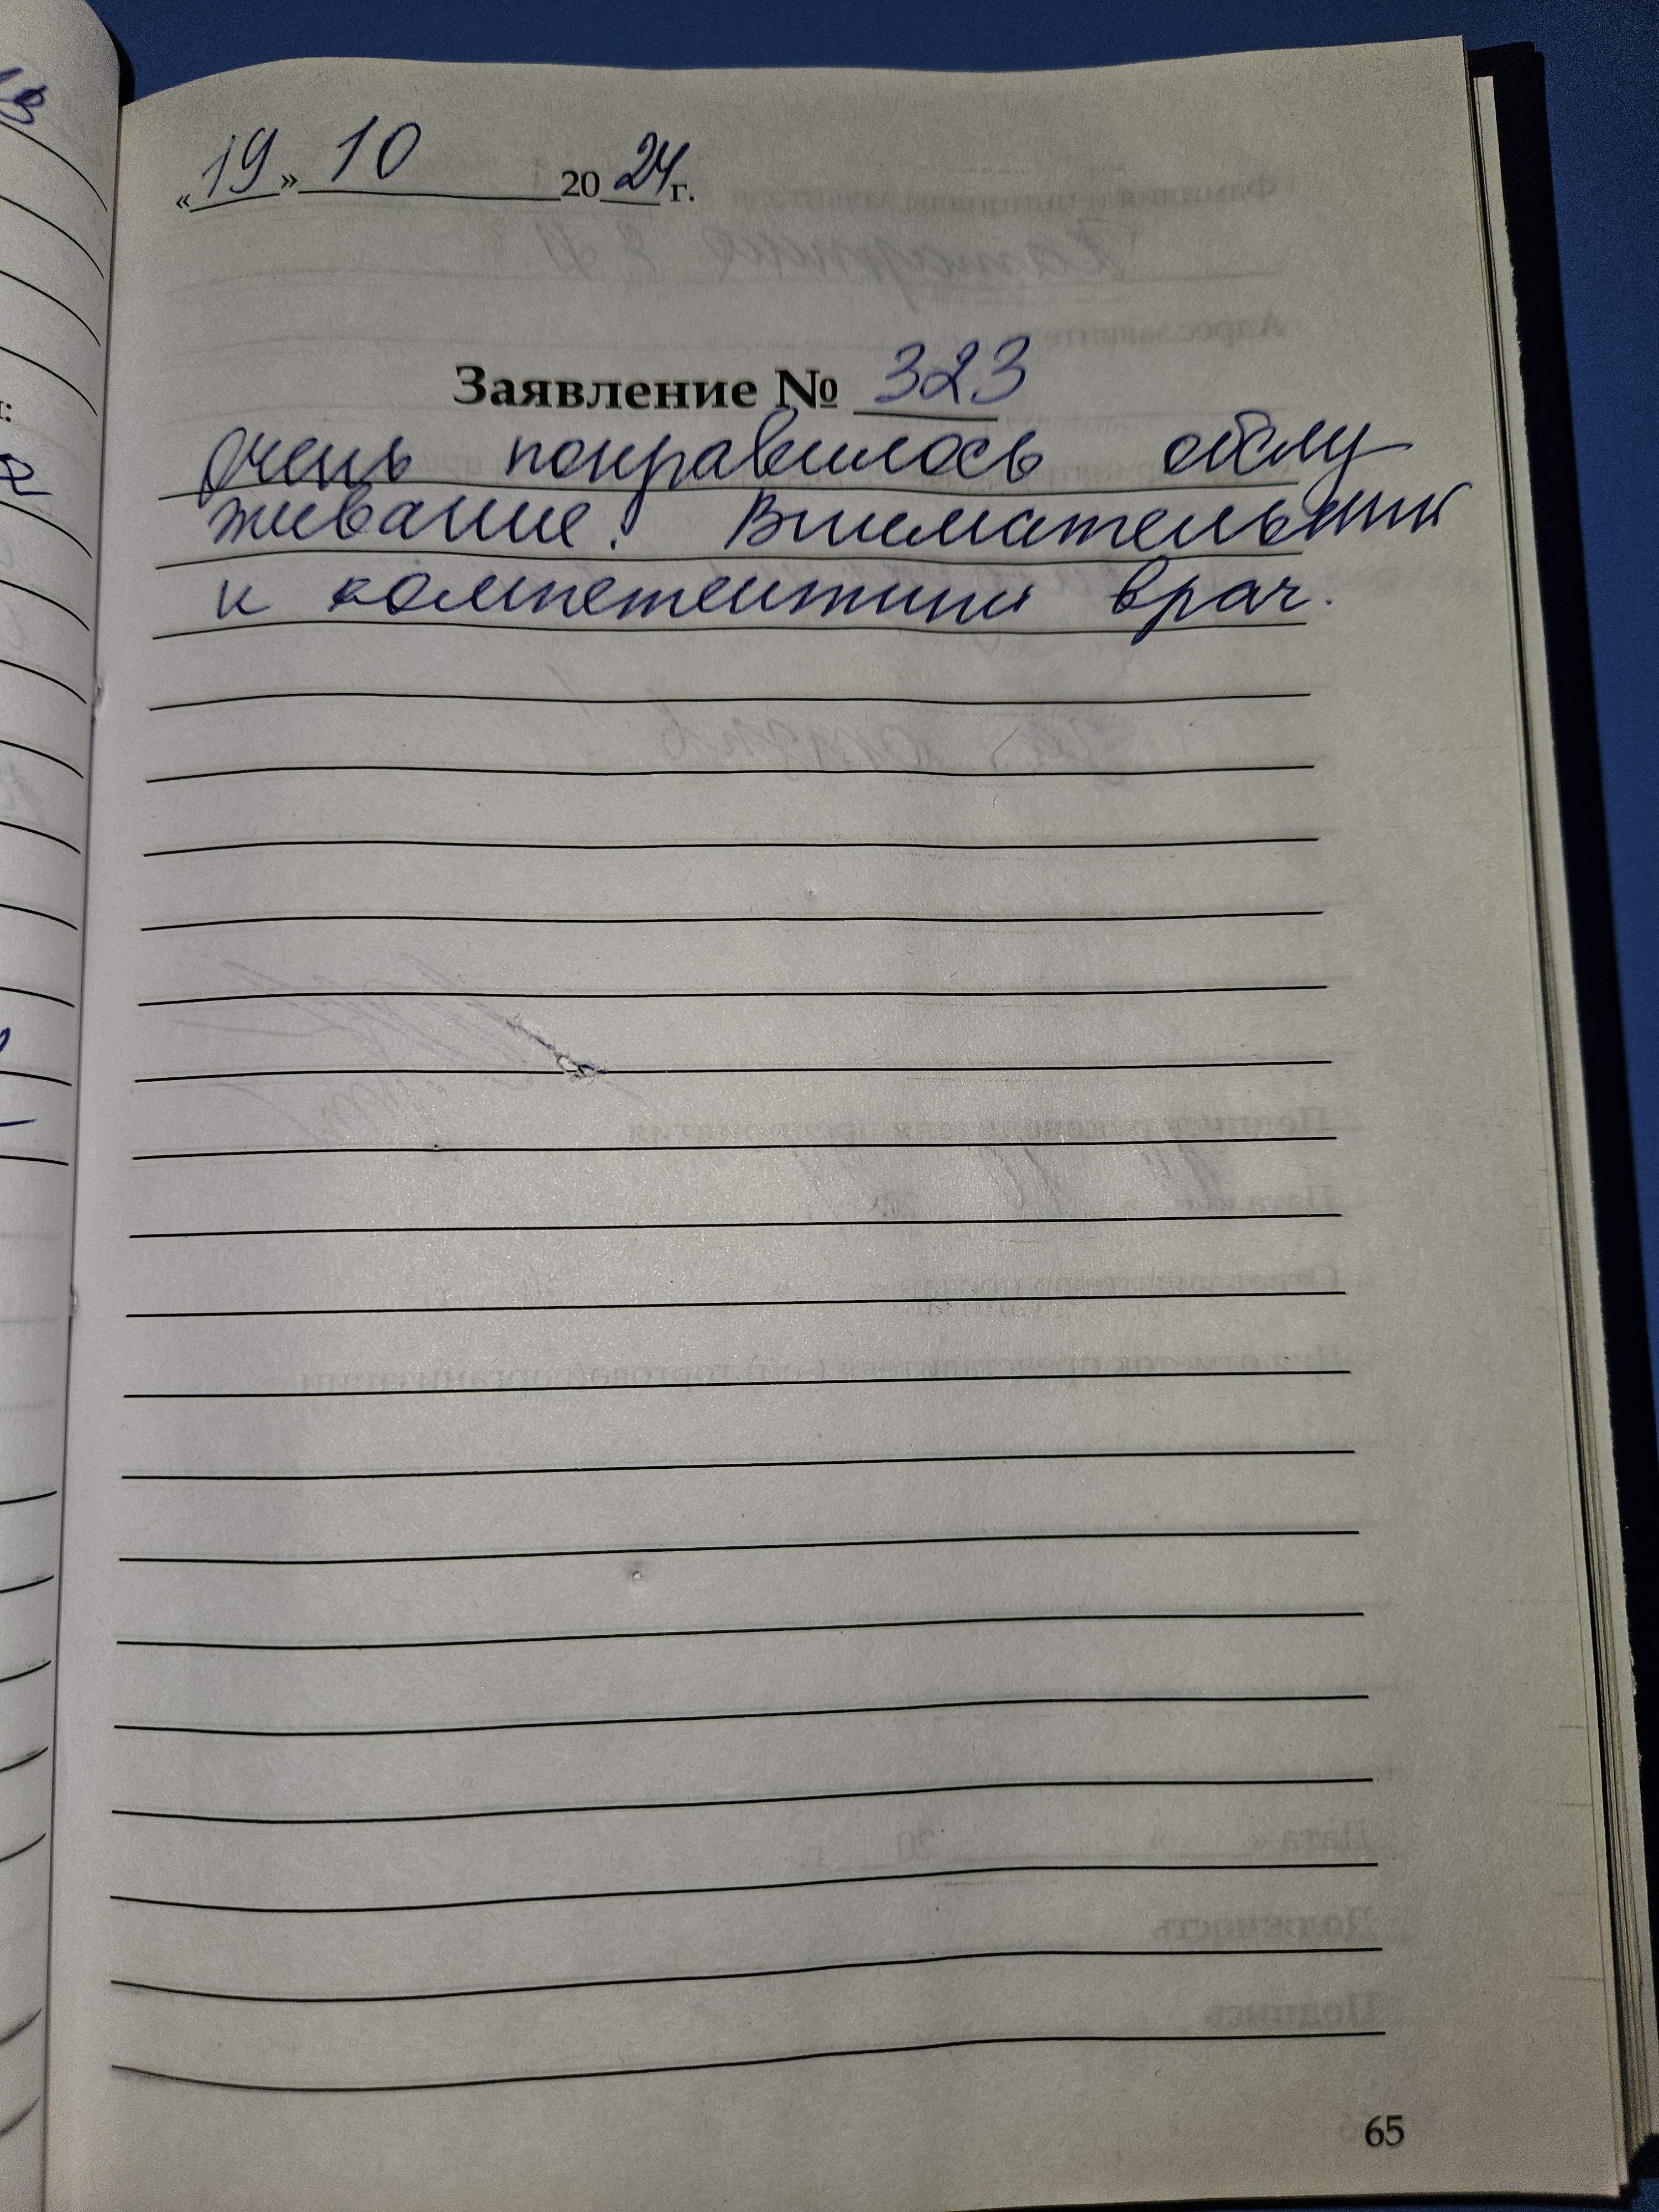 «19» 10 2024 г.
Заявление № 323
очень понравилось обслу
живание. Внимательный
и компетентный врач.
65